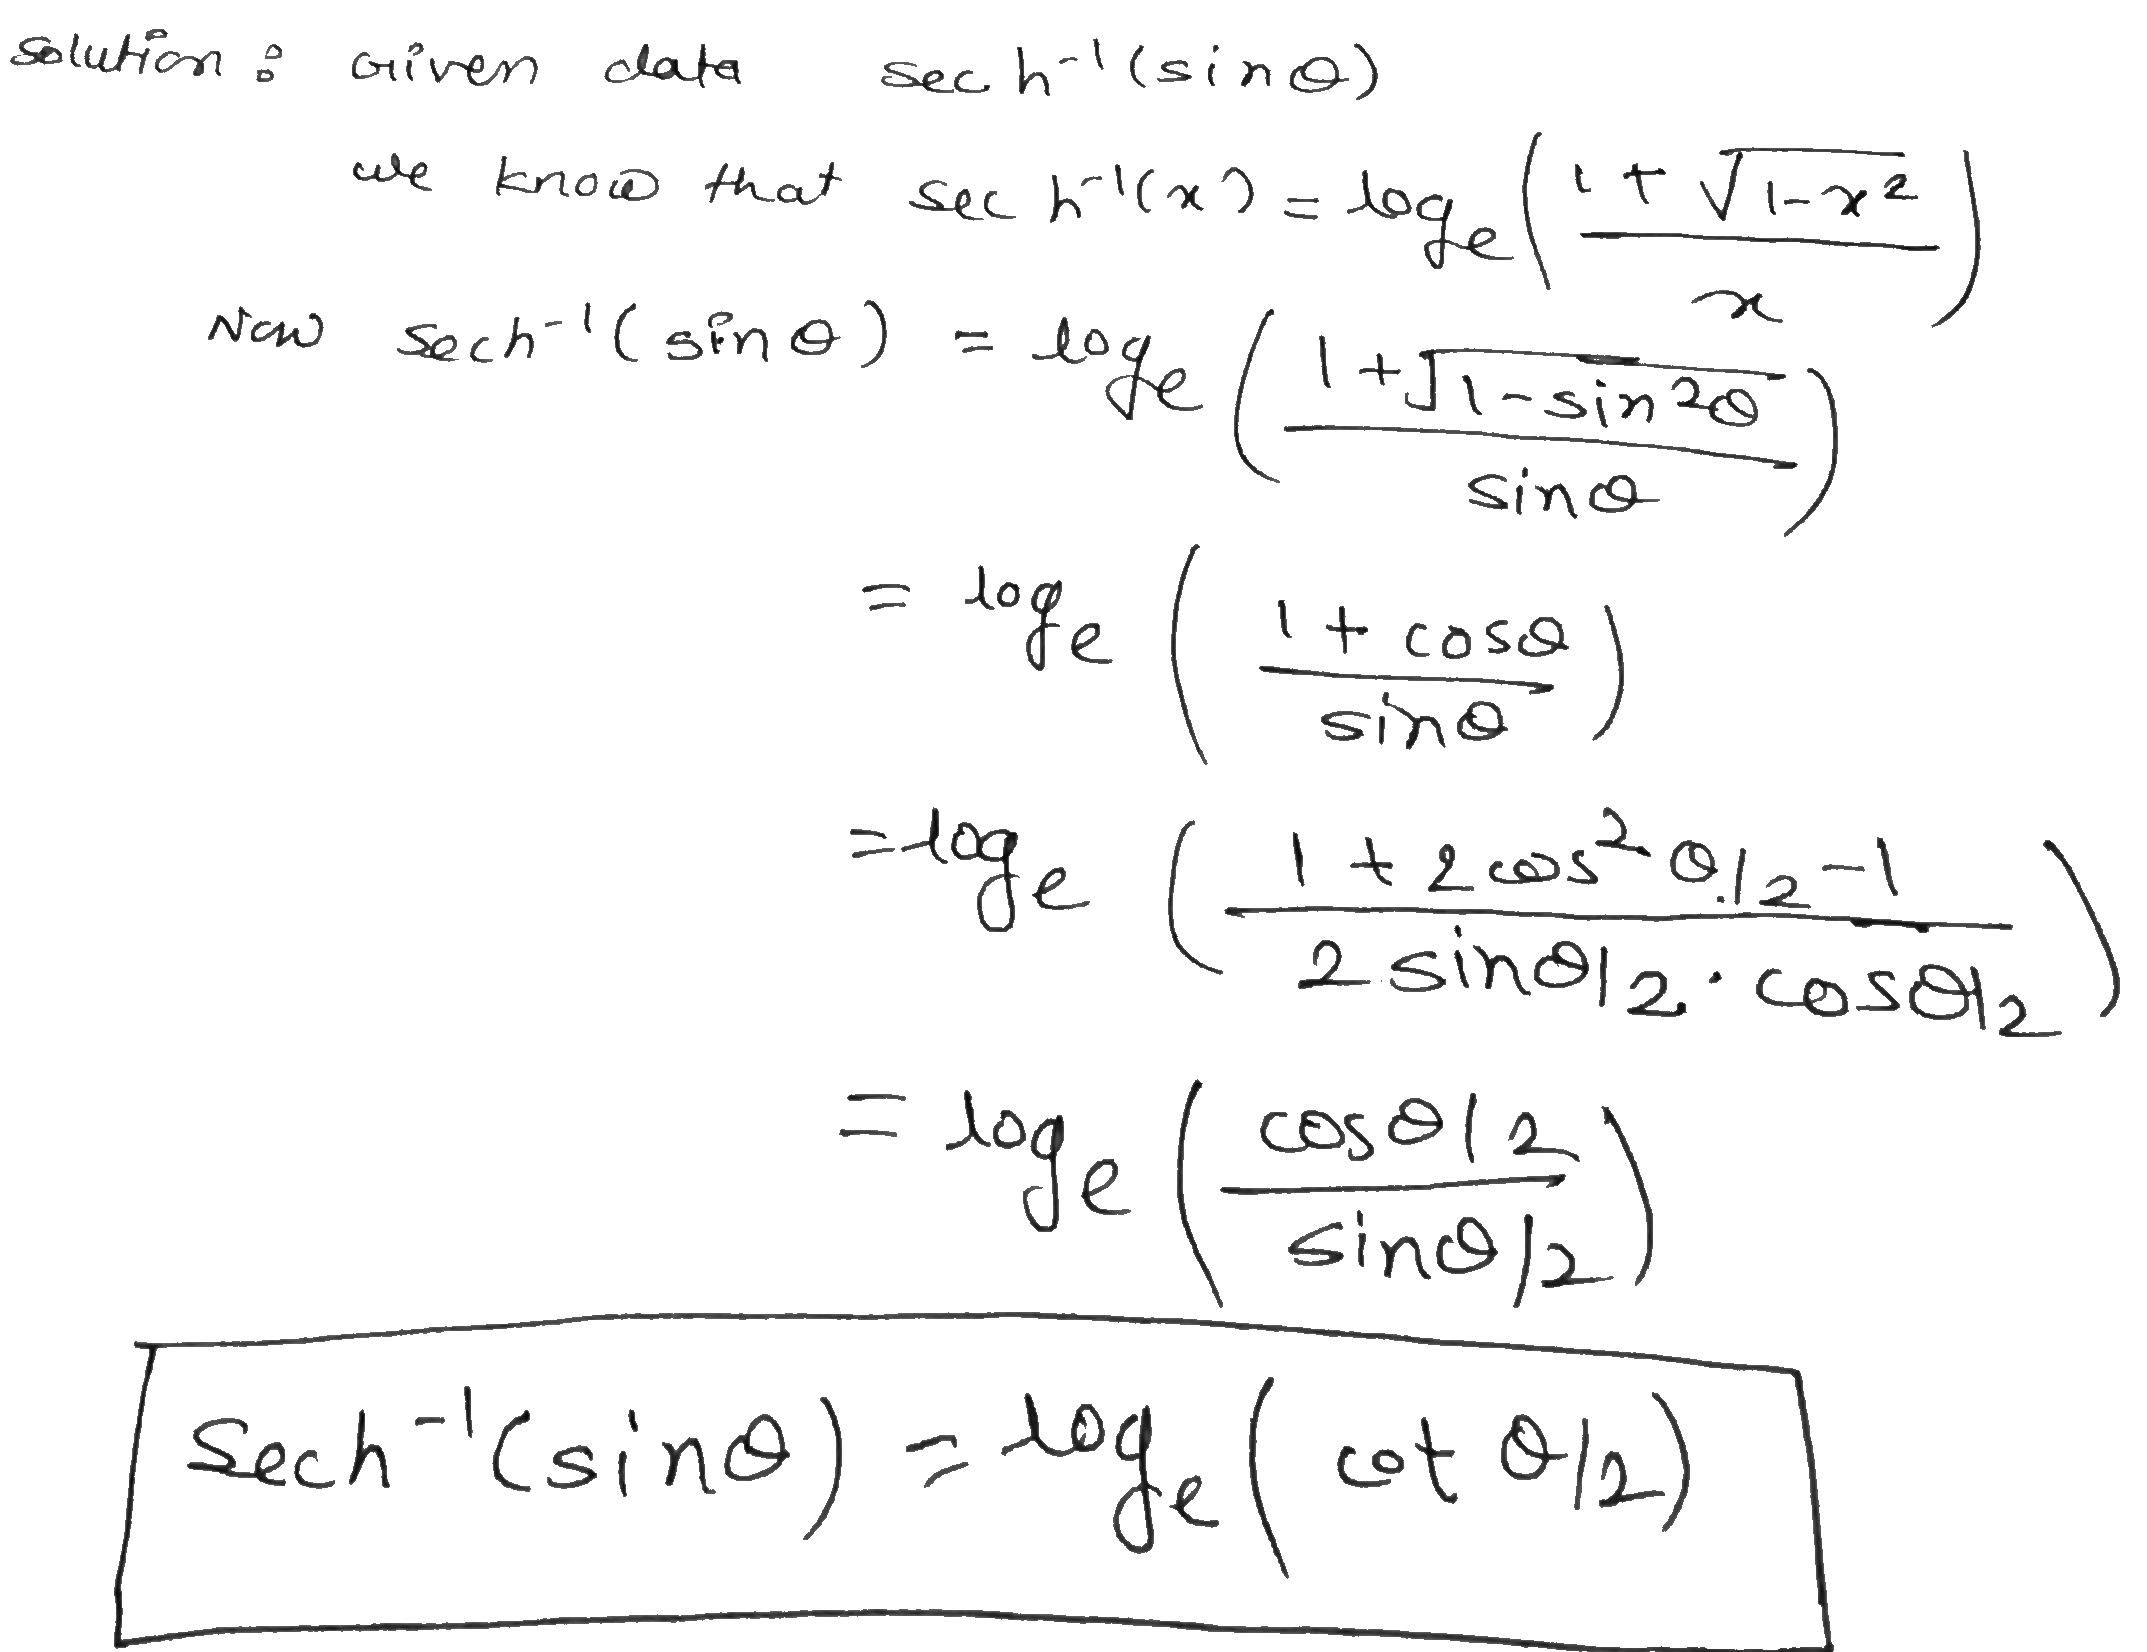 Solution : Given data sec h⁻¹(sinθ)
we know that sec h⁻¹(x) = logₑ((1+√(1-x²))/x)
Now sech⁻¹(sinθ) = logₑ((1+√(1-sin²θ))/sinθ)
= logₑ((1+cosθ)/sinθ)
= logₑ((1+2cos²θ/2-1)/(2sinθ/2·cosθ/2))
= logₑ((cosθ/2)/(sinθ/2))
Sech⁻¹(sinθ) = logₑ(cot θ/2)